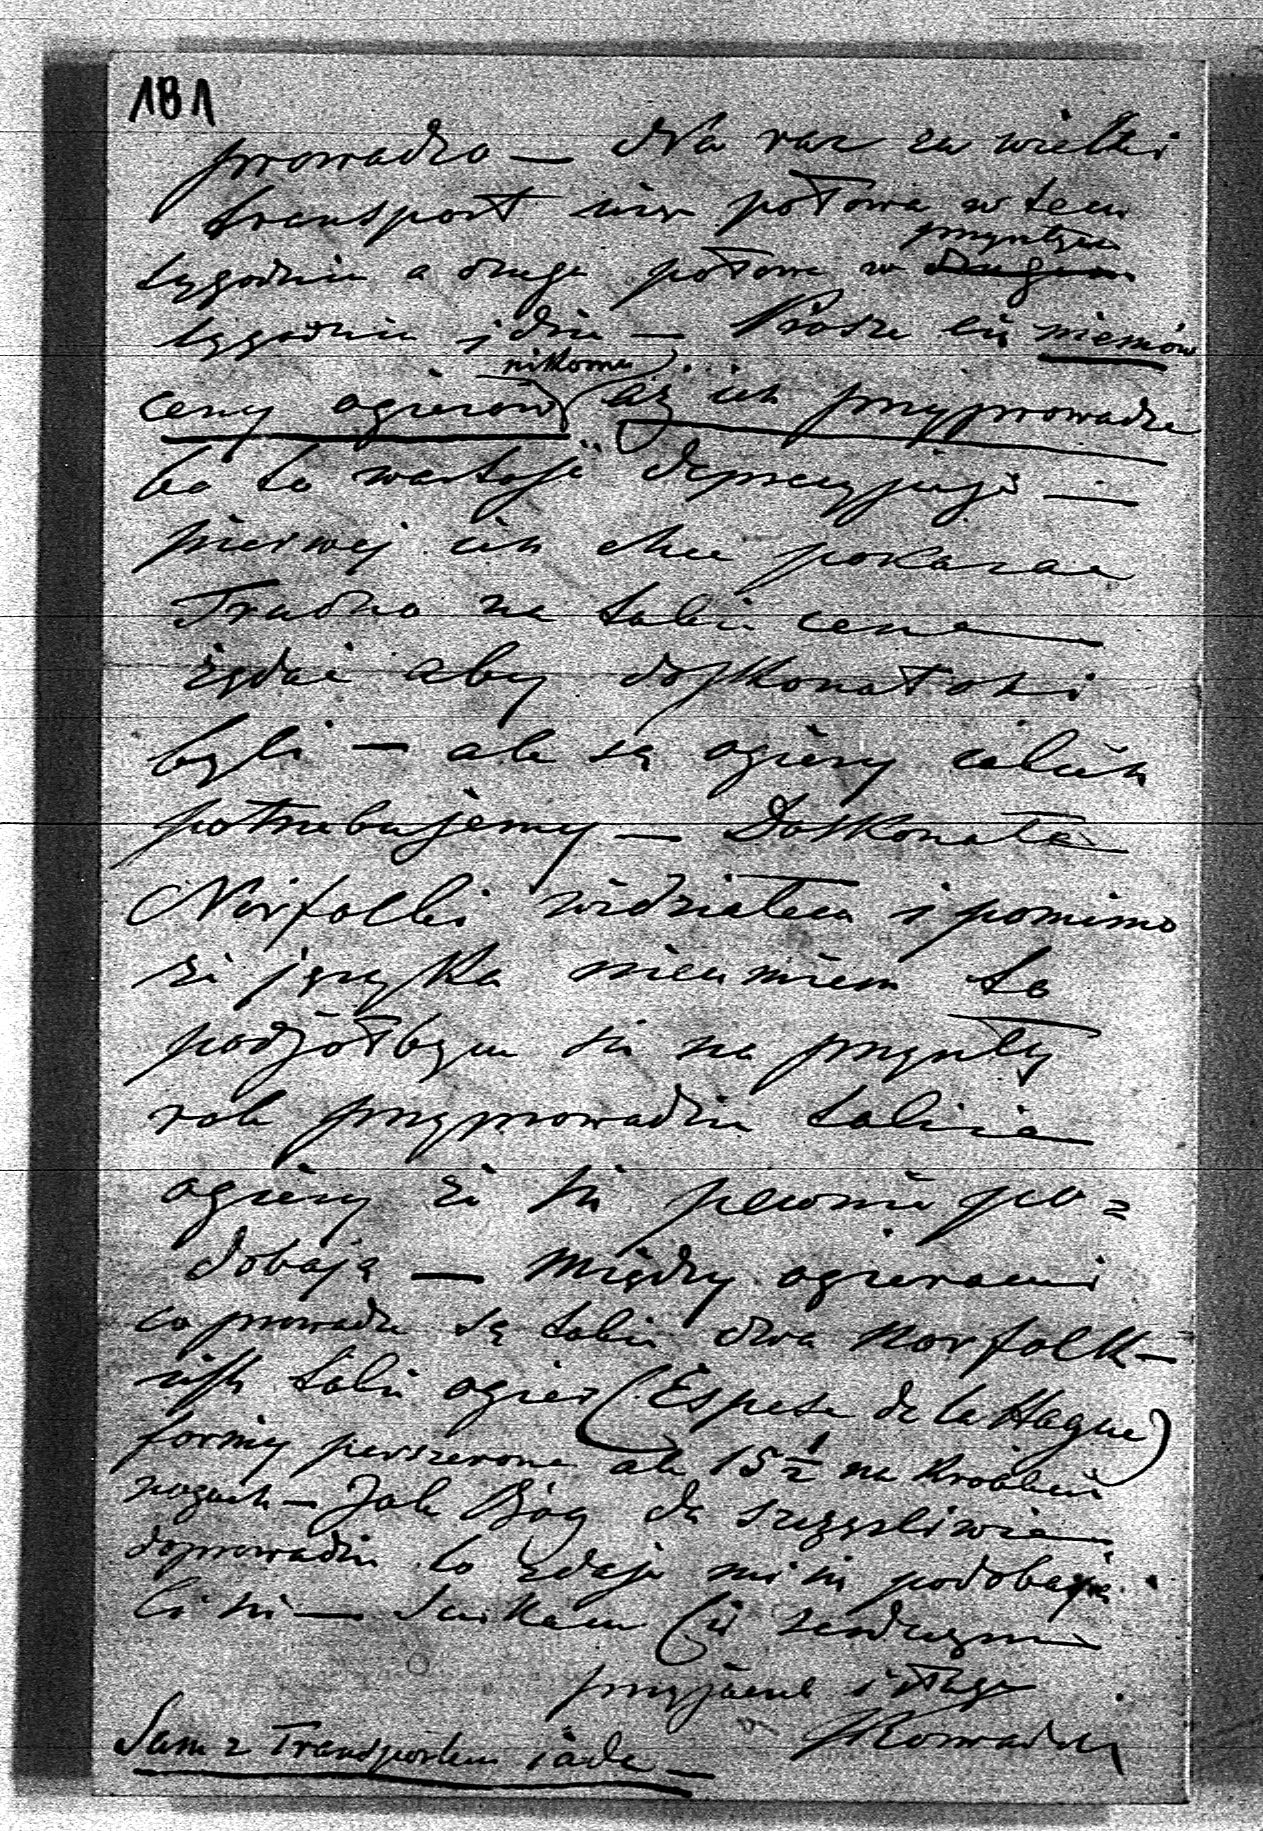 181
prowadzo — Na raz za wielki
transport więc połowa w tem
przyszłym
tygodniu a druga połowa w drugim
tygodniu idzie — Proszę cię niemów
nikomu
ceny ogierów aż ich przyprowadzę
bo to wartość deprecyjuje —
pierwej ich chcę pokazać
Trudno za takie cene
żądać aby doskonałości
byli — ale są ogiery jakich
potrzebujemy — Doskonałe
Norfolki widziałem i pomimo
że języka nieumiem to
podjołbym się na przyszły
rok przyprowadzić takie
ogiery że się pewnie po=
dobają — Między ogierami
co prowadzę są takie dwa Norfolk —
takie ogier (Espese de la Hague)
formy perszerona ale 15 1/2 na krótkich
nogach — Jak Bóg da szczęśliwie
doprowadzić to zdaje mi się podobają
ci się — Ściskam Cię serdecznie
przyjaciel i sługa
Sam z Transportem jadę —